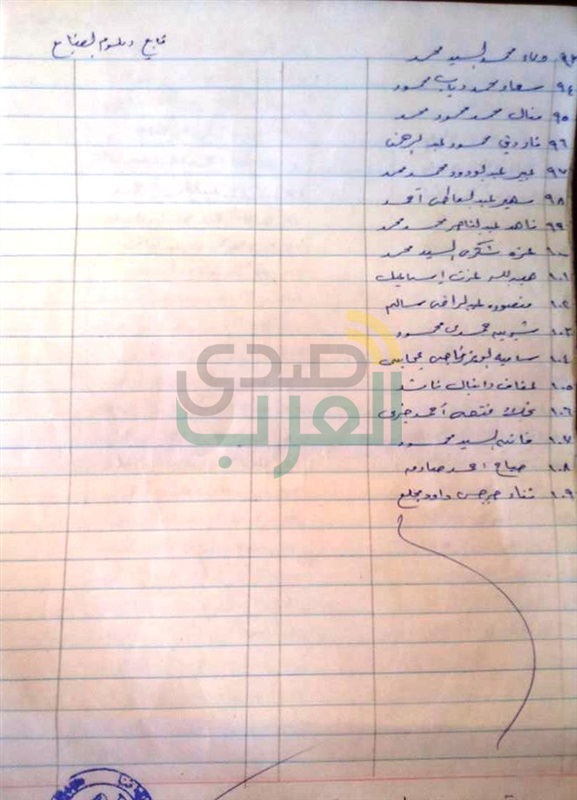 تابع دبلوم الصنايع
٩٣ وفاء محمد السيد محمد
٩٤ سعاد محمد دياب محمود
٩٥ منال محمد محمود محمد
٩٦ فاروق محمود عبد الرحمن
٩٧ عبير عبد الودود محمد محمد
٩٨ سهير عبد العاطى أحمد
٩٩ ناهد عبد الناصر محمد محمد
١٠٠ عزه شكرى السيد محمد
١٠١ عزت إسماعيل
١٠٢ منصوره عبد الراضى سالم
١٠٣ محمدى محمود
١٠٤ ساميه
١٠٥ عفاف دانيال راشد
١٠٦ نجلاء أحمد خيرى
١٠٧ فاتنه السيد محمود
١٠٨ صباح احمد صادق
١٠٩ ثناء جرجس داود
صدى
العرب